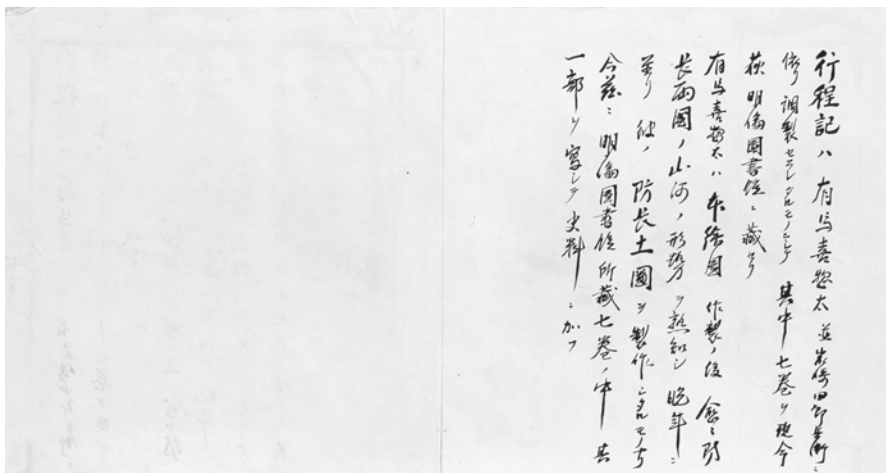 行程記ハ有馬喜惣太並
依り調製セラレタルモノニシテ其中七巻ヲ現今
萩明倫図書館ニ蔵セリ
有馬喜惣太ハ本絵図作製ノ後念々防
長両国ノ山河ノ形勢ヲ熟知シ晩年ニ
至り彼ノ防長土図ヲ製作シタルモノナ
今茲ニ明倫図書館所蔵七巻ノ中其
一部ヲ寫シテ史料ニ加フ